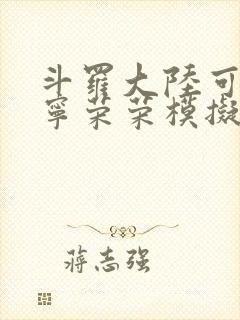 斗羅大陸可
寧荣荣模擬
蒋志强